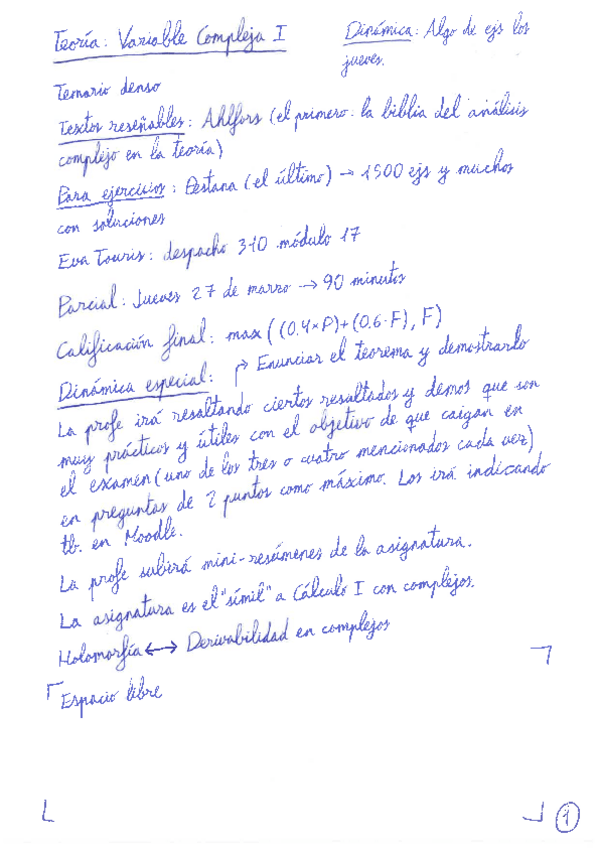 Teoría: Variable Compleja I
Dinámica: Algo de ejs los
jueves.
Temario denso
Textos reseñables: Ahlfors (el primero. la biblia del análisis
complejo en la teoría)
Para ejercicios: Pestana (el último) → 1500 ejs y muchos
con soluciones
Eva Touris: despacho 310 módulo 17
Parcial: Jueves 27 de marzo → 90 minutos
Calificación final: max ((0.4×P)+(0.6·F), F)
Dinámica especial: ↱ Enunciar el teorema y demostrarlo
La profe irá resaltando ciertos resultados y demos que son
muy prácticos y útiles con el objetivo de que caigan en
el examen (uno de los tres o cuatro mencionados cada vez)
en preguntas de 2 puntos como máximo. Los irá indicando
tb. en Moodle.
La profe subirá mini-resúmenes de la asignatura.
La asignatura es el "símil" a Cálculo I con complejos.
Holomorfía ↔ Derivabilidad en complejos
Espacio libre
1